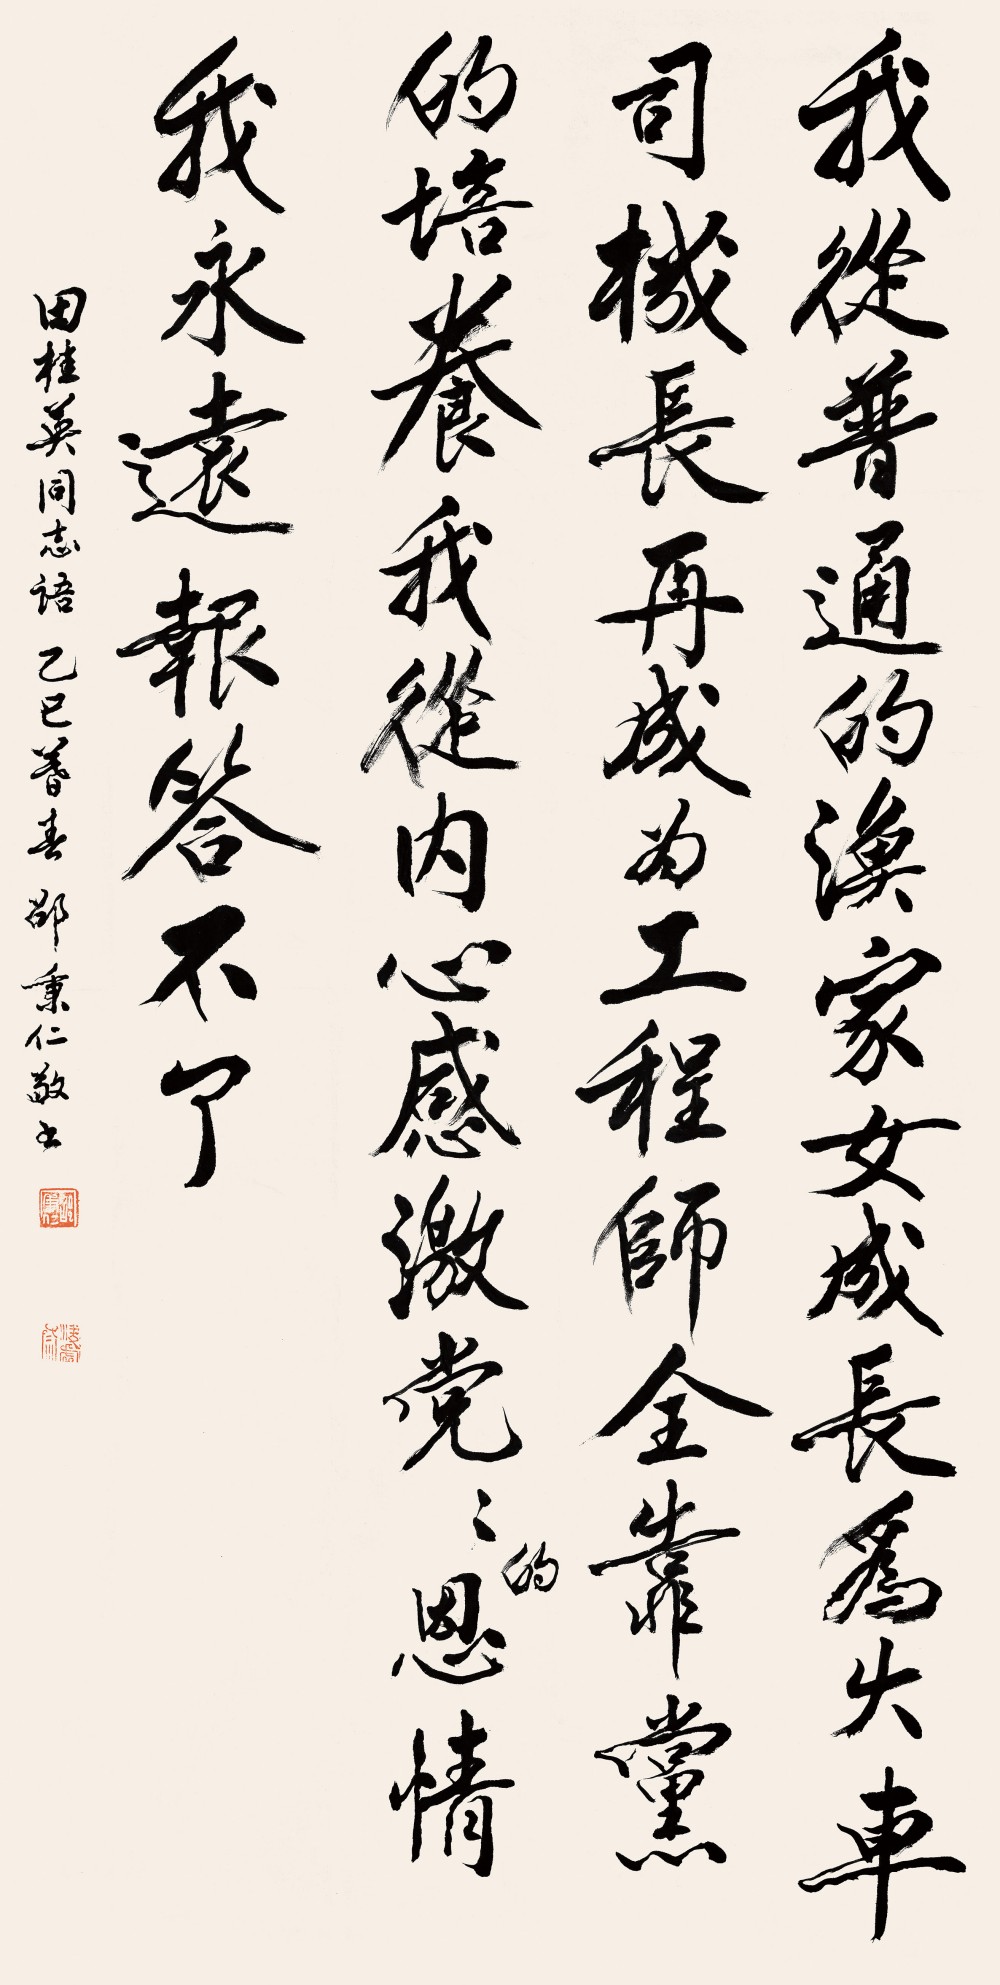 我從普通的漁家女成長為火車
司機長再成为工程師全靠黨
的培养我從内心感激党〻的恩情
我永遠報答不了
田桂英同志語乙巳暮春邵秉仁敬书